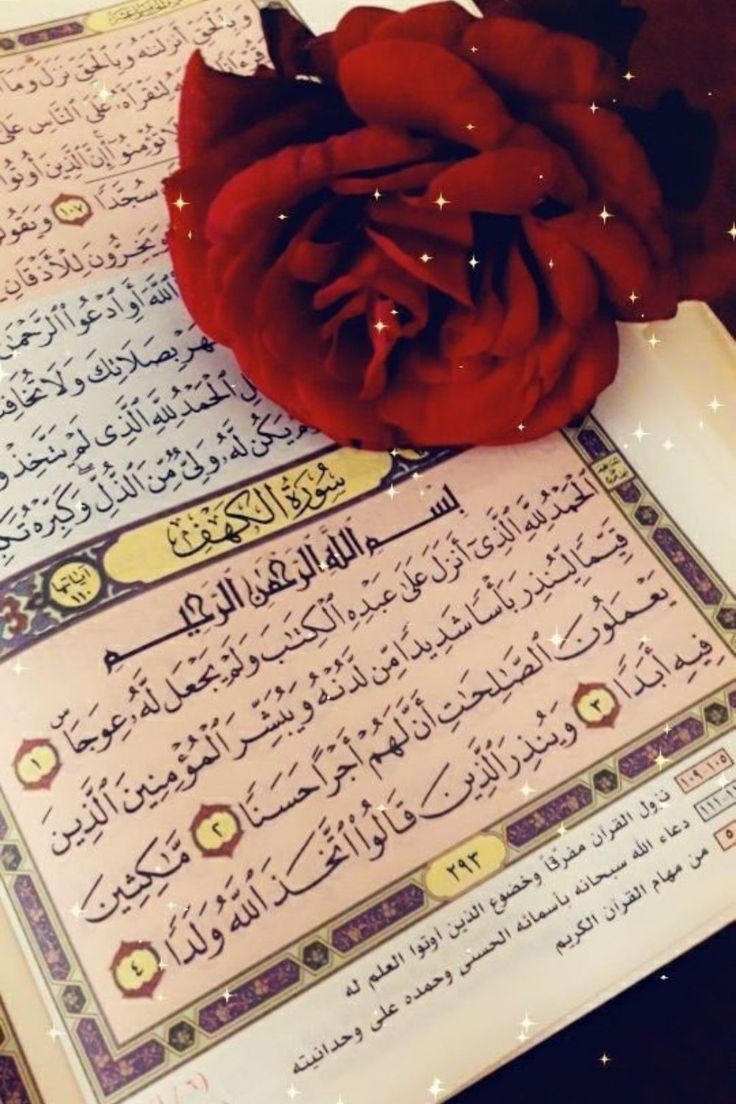 وَبِٱلْحَقِّ أَنزَلْنَٰهُ وَبِٱلْحَقِّ نَزَلَ وَمَا
لِتَقْرَأَهُۥ عَلَى ٱلنَّاسِ عَلَىٰ
تُؤْمِنُوٓا۟ إِنَّ ٱلَّذِينَ أُوتُوا۟
سُجَّدًا ١٠٧ وَيَقُولُونَ
يَخِرُّونَ لِلْأَذْقَانِ
ٱللَّهَ أَوِ ٱدْعُوا۟ ٱلرَّحْمَٰنَ
بِصَلَاتِكَ وَلَا تُخَافِتْ
ٱلْحَمْدُ لِلَّهِ ٱلَّذِى لَمْ يَتَّخِذْ
يَكُن لَّهُۥ وَلِىٌّ مِّنَ ٱلذُّلِّ وَكَبِّرْهُ
سُورَةُ الكَهْفِ
آياتها ١١٠
بِسْمِ اللَّهِ الرَّحْمَٰنِ الرَّحِيمِ
ٱلْحَمْدُ لِلَّهِ ٱلَّذِىٓ أَنزَلَ عَلَىٰ عَبْدِهِ ٱلْكِتَٰبَ وَلَمْ يَجْعَل لَّهُۥ عِوَجَاۜ ١
قَيِّمًا لِّيُنذِرَ بَأْسًا شَدِيدًا مِّن لَّدُنْهُ وَيُبَشِّرَ ٱلْمُؤْمِنِينَ ٱلَّذِينَ
يَعْمَلُونَ ٱلصَّٰلِحَٰتِ أَنَّ لَهُمْ أَجْرًا حَسَنًا ٢ مَّٰكِثِينَ
فِيهِ أَبَدًا ٣ وَيُنذِرَ ٱلَّذِينَ قَالُوا۟ ٱتَّخَذَ ٱللَّهُ وَلَدًا ٤
٢٩٣
١٠٥-١٠٩ نزول القرآن مفرقاً وخضوع الذين أوتوا العلم له
دعاء الله سبحانه بأسمائه الحسنى وحمده على وحدانيته
من مهام القرآن الكريم